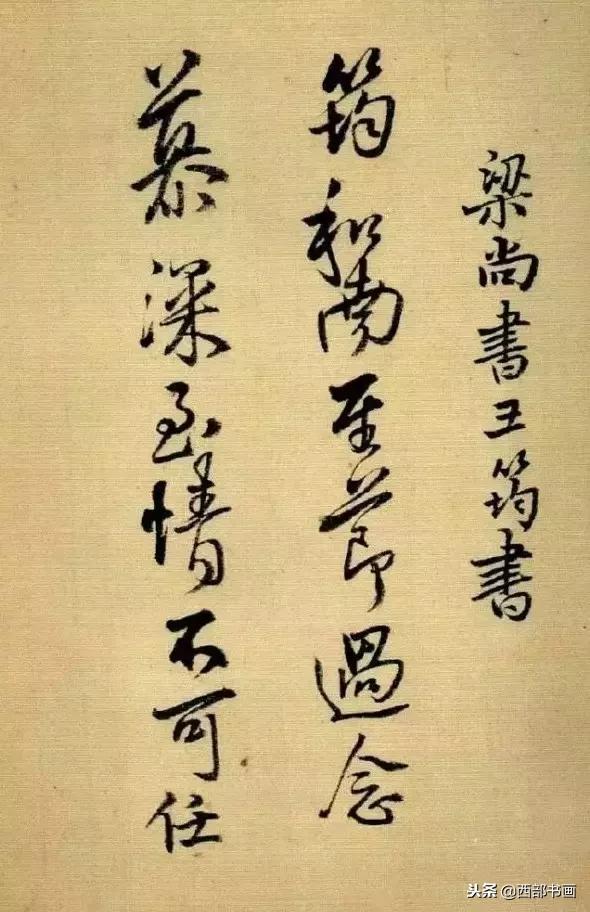 梁尚書王筠書
筠和南至節過念
慕深至情不可任
头条 @西部书画